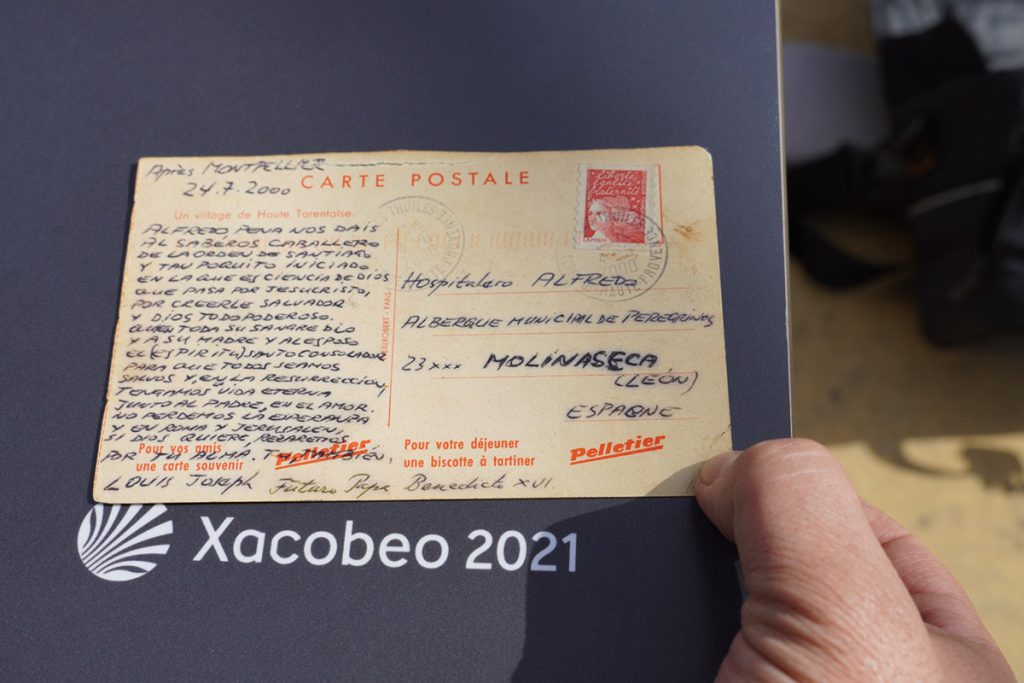 Après MONTPELLIER
24.7.2000
CARTE POSTALE
Un village de Haute Tarentaise.
ALFREDO PENA NOS DAIS
AL SABEROS CABALLERO
DE LA ORDEN DE SANTIAGO
Y TAN POQUITO INICIADO
EN LA QUE ES CIENCIA DE DIOS
QUE PASA POR JESUCRISTO,
POR CREERLE SALVADOR
Y DIOS TODOPODEROSO.
QUIEN TODA SU SANGRE DIO
Y A SU MADRE Y AL ESPOSO
EL (ESPIRITU) SANTO CONSOLADOR
PARA QUE TODOS SEAMOS
SALVOS Y, EN LA RESURRECCION,
TENGAMOS VIDA ETERNA
JUNTO AL PADRE, EN EL AMOR.
NO PERDEMOS LA ESPERANZA
Y EN ROMA Y JERUSALEN,
SI DIOS QUIERE, REZAREMOS
POR TU ALMA. TU TAMBIÉN.
LOUIS JOSEPH Futuro Papa Benedicto XVI.
Pour vos amis
une carte souvenir
Pelletier
Liberté
Egalité
Fraternité
LA POSTE
Hospitalero ALFREDO
ALBERGUE MUNICIPAL DE PEREGRINOS
23xxx MOLINASECA
(LEÓN)
ESPAGNE
Pour votre déjeuner
une biscotte à tartiner
Pelletier
Xacobeo 2021